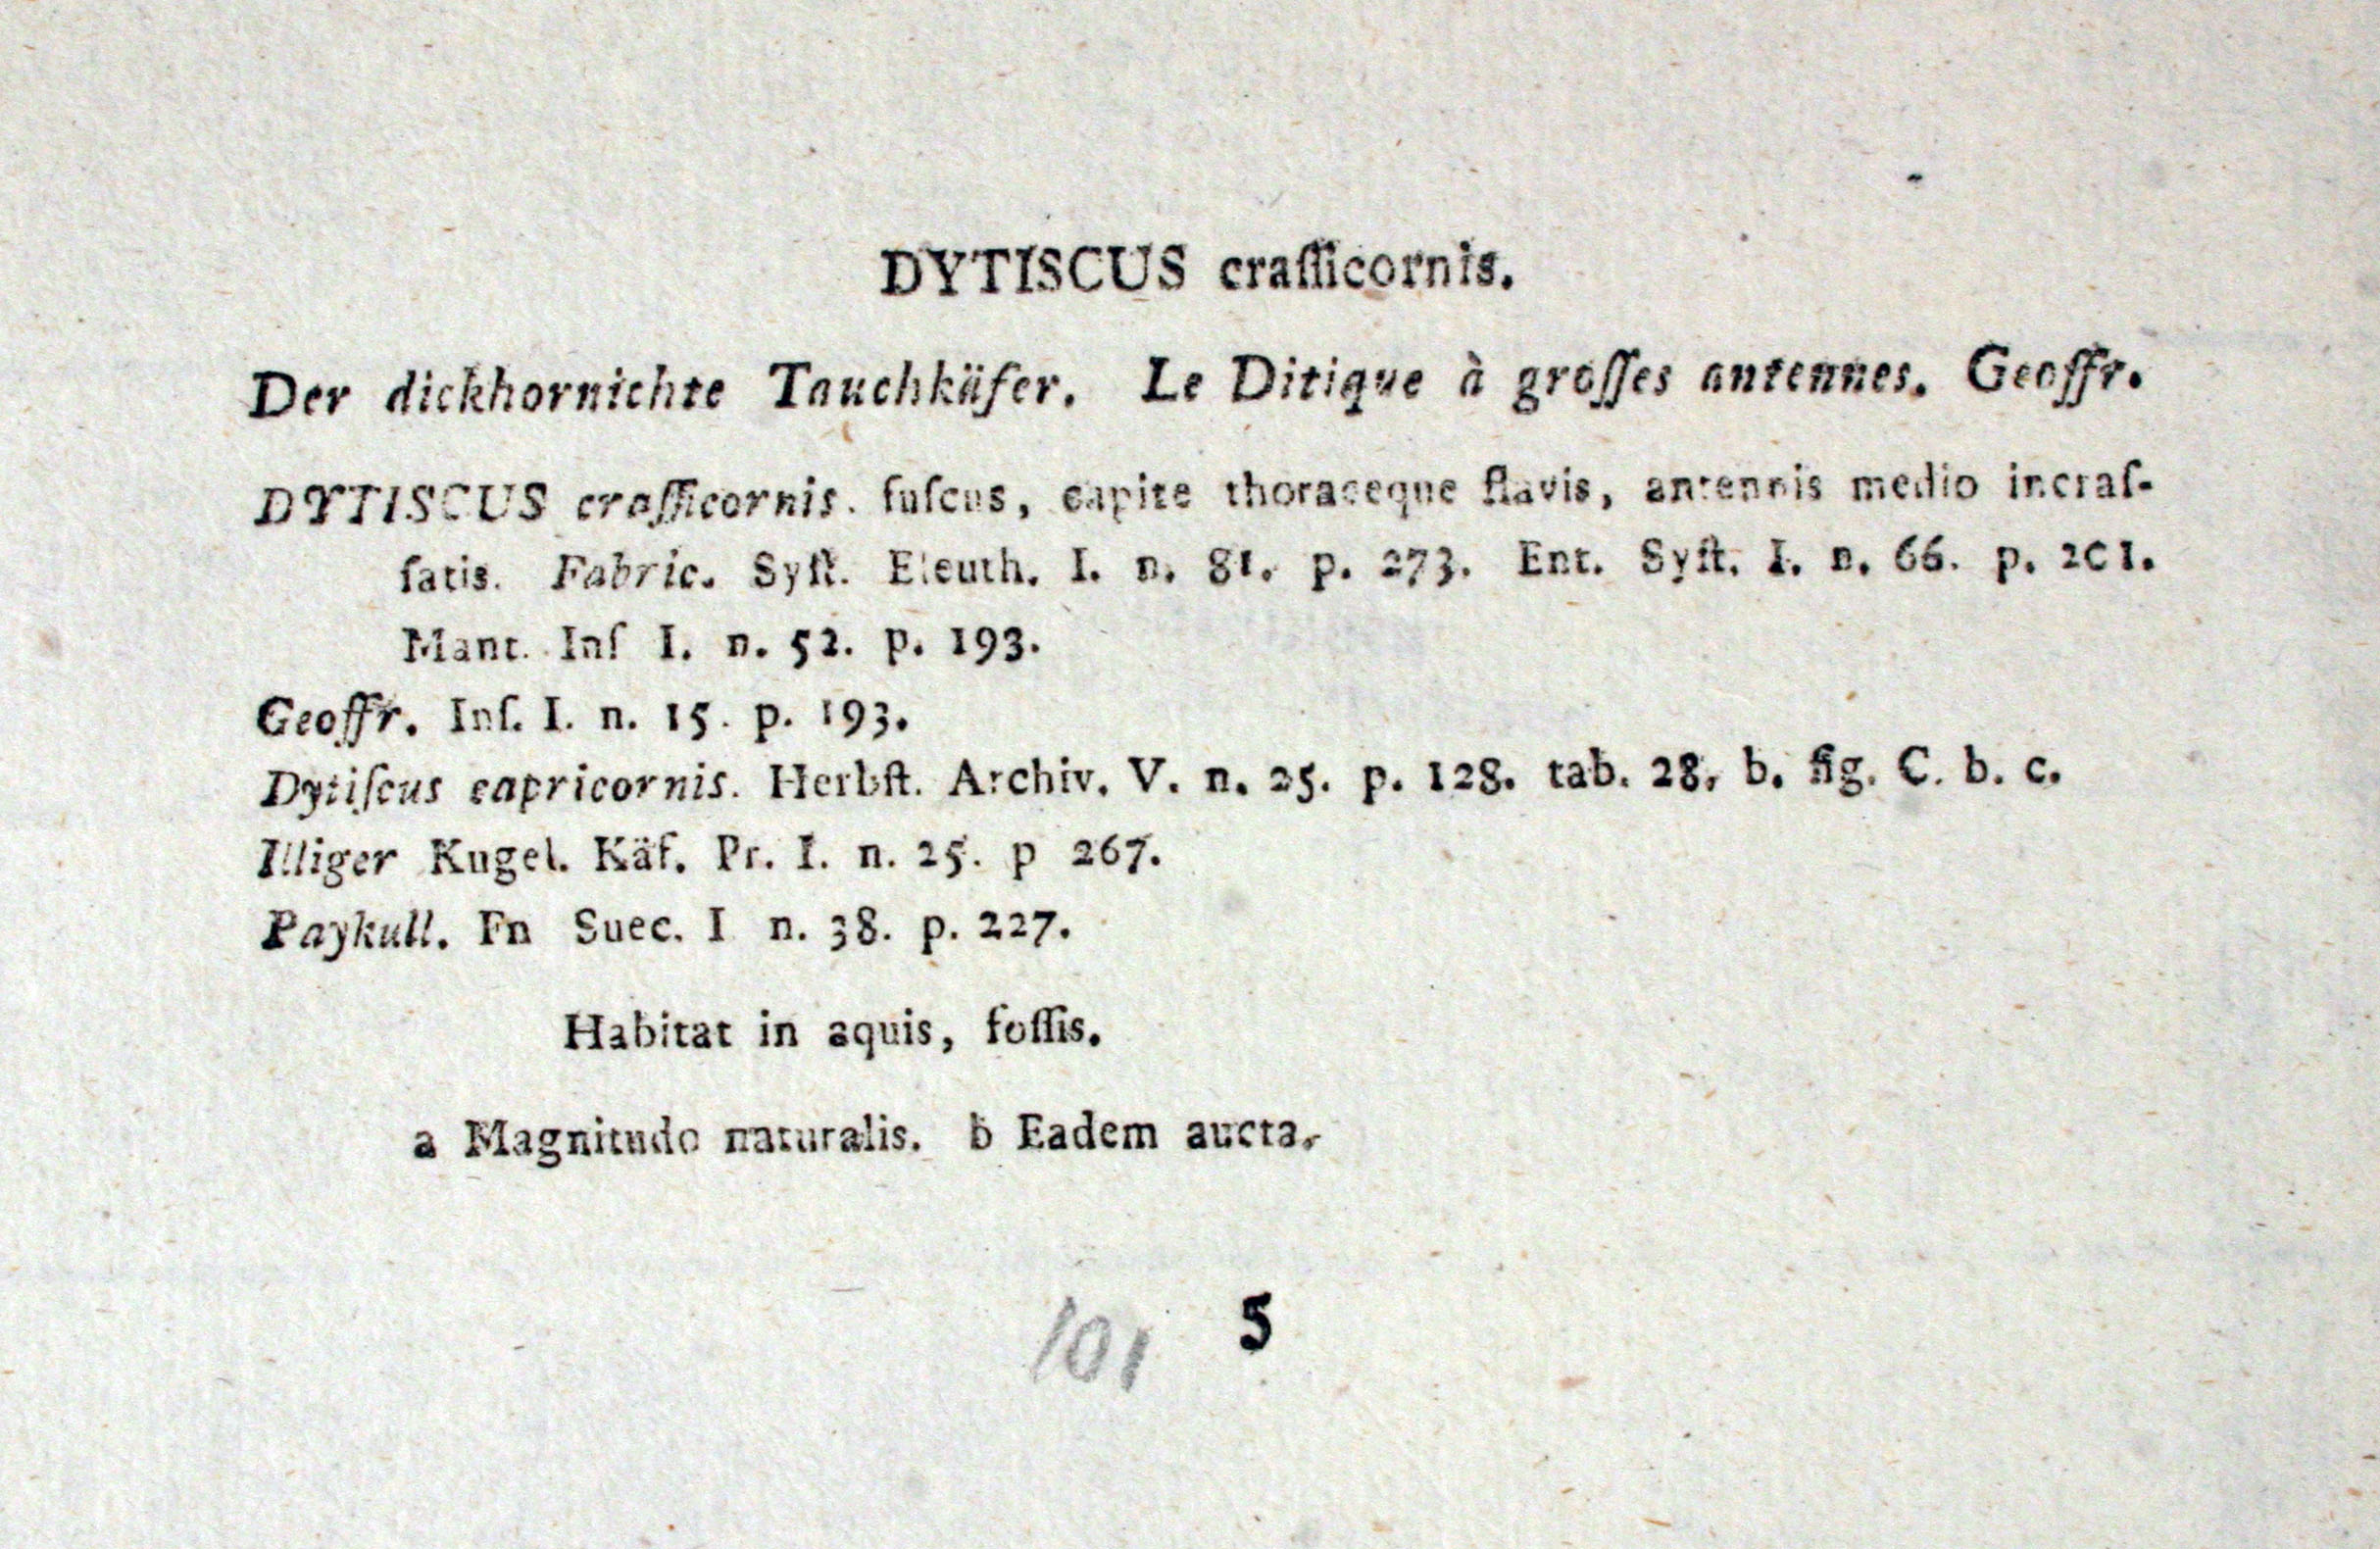 DYTISCUS craſſicornis.
Der dickhornichte Tauchkäfer. Le Ditique à groſſes antennes. Geoffr.
DYTISCUS craſſicornis. fuſcus, capite thoraceque flavis, antennis medio incraſ-
ſatis. Fabric. Syſt. Eleuth. I. n. 81. p. 273. Ent. Syſt. I. n. 66. p. 201.
Mant. Inſ I. n. 52. p. 193.
Geoffr. Inſ. I. n. 15. p. 193.
Dytiſcus capricornis. Herbſt. Archiv. V. n. 25. p. 128. tab. 28, b. fig. C. b. c.
Illiger Kugel. Käf. Pr. I. n. 25. p 267.
Paykull. Fn Suec. I n. 38. p. 227.
Habitat in aquis, foſſis.
a Magnitudo naturalis. b Eadem aucta.
101 5